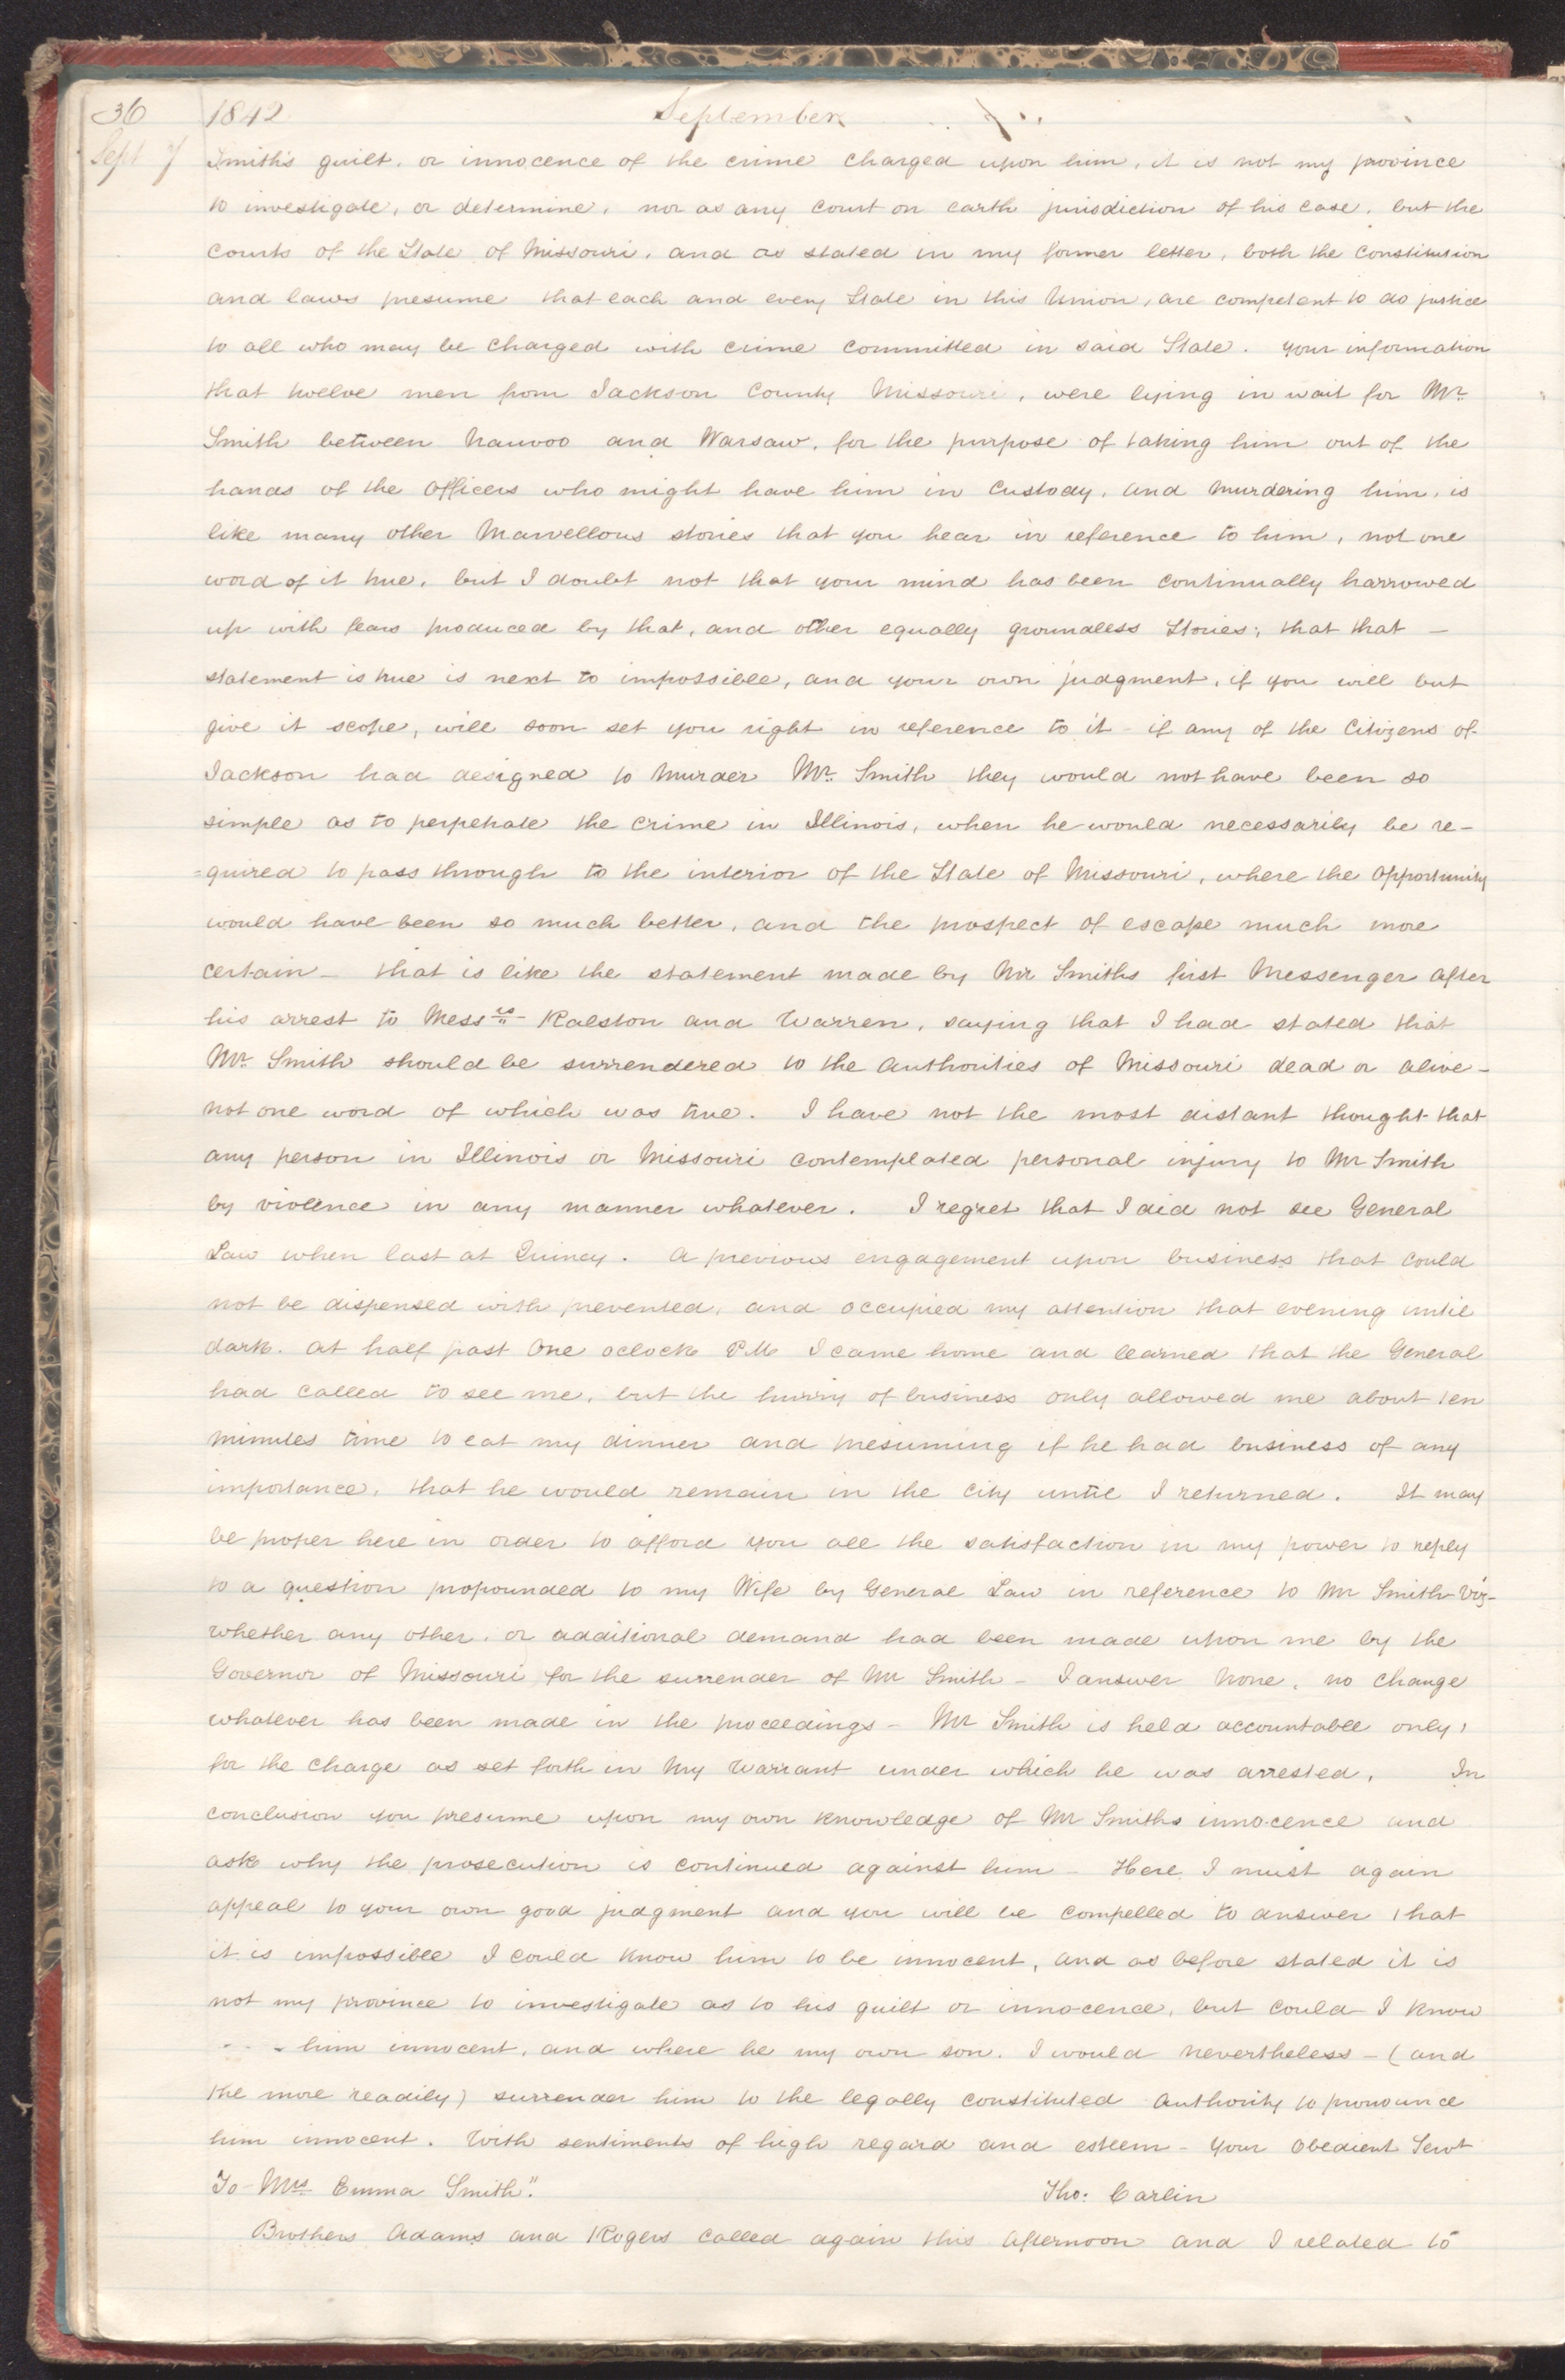 36 1842 September
Sept 7 Smith's guilt, or innocence of the crime charged upon him, it is not my province
to investigate, or determine, nor as any court on earth jurisdiction of his case, but the
courts of the State of Missouri, and as stated in my former letter, both the constitution
and laws presume that each and every State in this Union, are competent to do justice
to all who may be charged with crime committed in said State. your information
that twelve men from Jackson County Missouri, were lying in wait for Mr.
Smith between Nauvoo and Warsaw, for the purpose of taking him out of the
hands of the officers who might have him in custody, and murdering him, is
like many other Marvellous stories that you hear in reference to him, not one
word of it true, but I doubt not that your mind has been continually harrowed
up with fears produced by that, and other equally groundless Stories; that that —
statement is true is next to impossible, and your own judgment, if you will but
give it scope, will soon set you right in reference to it - if any of the Citizens of
Jackson had designed to murder Mr. Smith they would not have been so
simple as to perpetrate the crime in Illinois, when he would necessarily be re-
=quired to pass through to the interior of the State of Missouri, where the opportunity
would have been so much better, and the prospect of escape much more
certain - that is like the statement made by Mr Smiths first Messenger after
his arrest to Messrs Ralston and Warren, saying that I had stated that
Mr. Smith should be surrendered to the authorities of Missouri dead or alive -
not one word of which was true. I have not the most distant thought that
any person in Illinois or Missouri contemplated personal injury to Mr Smith
by violence in any manner whatever. I regret that I did not see General
Law when last at Quincy. A previous engagement upon business that could
not be dispensed with prevented, and occupied my attention that evening until
dark. at half past One oclock P.M. I came home and learned that the General
had called to see me, but the hurry of business only allowed me about ten
minutes time to eat my dinner and presuming if he had business of any
importance, that he would remain in the city until I returned. It may
be proper here in order to afford you all the satisfaction in my power to reply
to a question propounded to my Wife by General Law in reference to Mr Smith - viz -
whether any other, or additional demand had been made upon me by the
Governor of Missouri for the surrender of Mr Smith - I answer None, no change
whatever has been made in the proceedings - Mr Smith is held accountable only,
for the charge as set forth in my warrant under which he was arrested. In
conclusion you presume upon my own knowledge of Mr Smiths innocence and
ask why the prosecution is continued against him - Here I must again
appeal to your own good judgment and you will be compelled to answer that
it is impossible I could know him to be innocent, and as before stated it is
not my province to investigate as to his guilt or innocence, but could I know
him innocent, and where he my own son. I would nevertheless - (and
the more readily) surrender him to the legally constituted authority to pronounce
him innocent. With sentiments of high regard and esteem - your obedient Servt
To Mrs. Emma Smith". Tho: Carlin
Brothers Adams and Rogers called again this afternoon and I related to